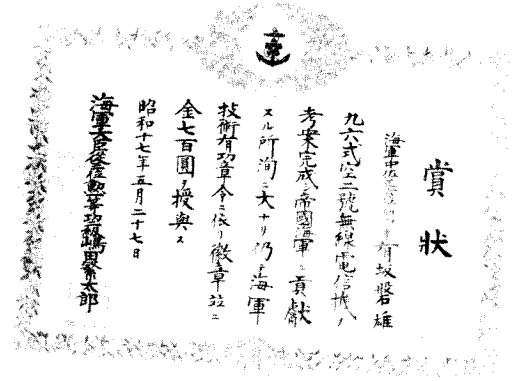 賞状
海軍中佐 有坂磐雄
九六式空二號無線電信機ノ
考案完成ハ帝國海軍ニ貢獻
スル所洵ニ大ナリ仍テ海軍
技術有功章令ニ依リ徽章竝ニ
金七百圓ヲ授與ス
昭和十七年五月二十七日
海軍大臣 嶋田繁太郎